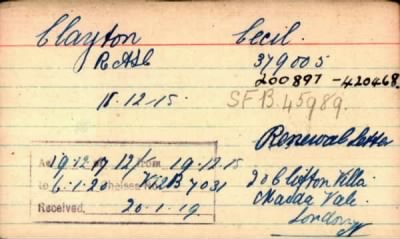 Clayton Cecil.
RASC 379005
200897 - 420468.
18.12.15. SFB.45989.
Renewal Letter
19.12.19 12/- from 19.12.15
to 6.1.20 Chelsea No. 7031
20 Clifton Villa
Received. 20.1.19.
Maida Vale.
London W